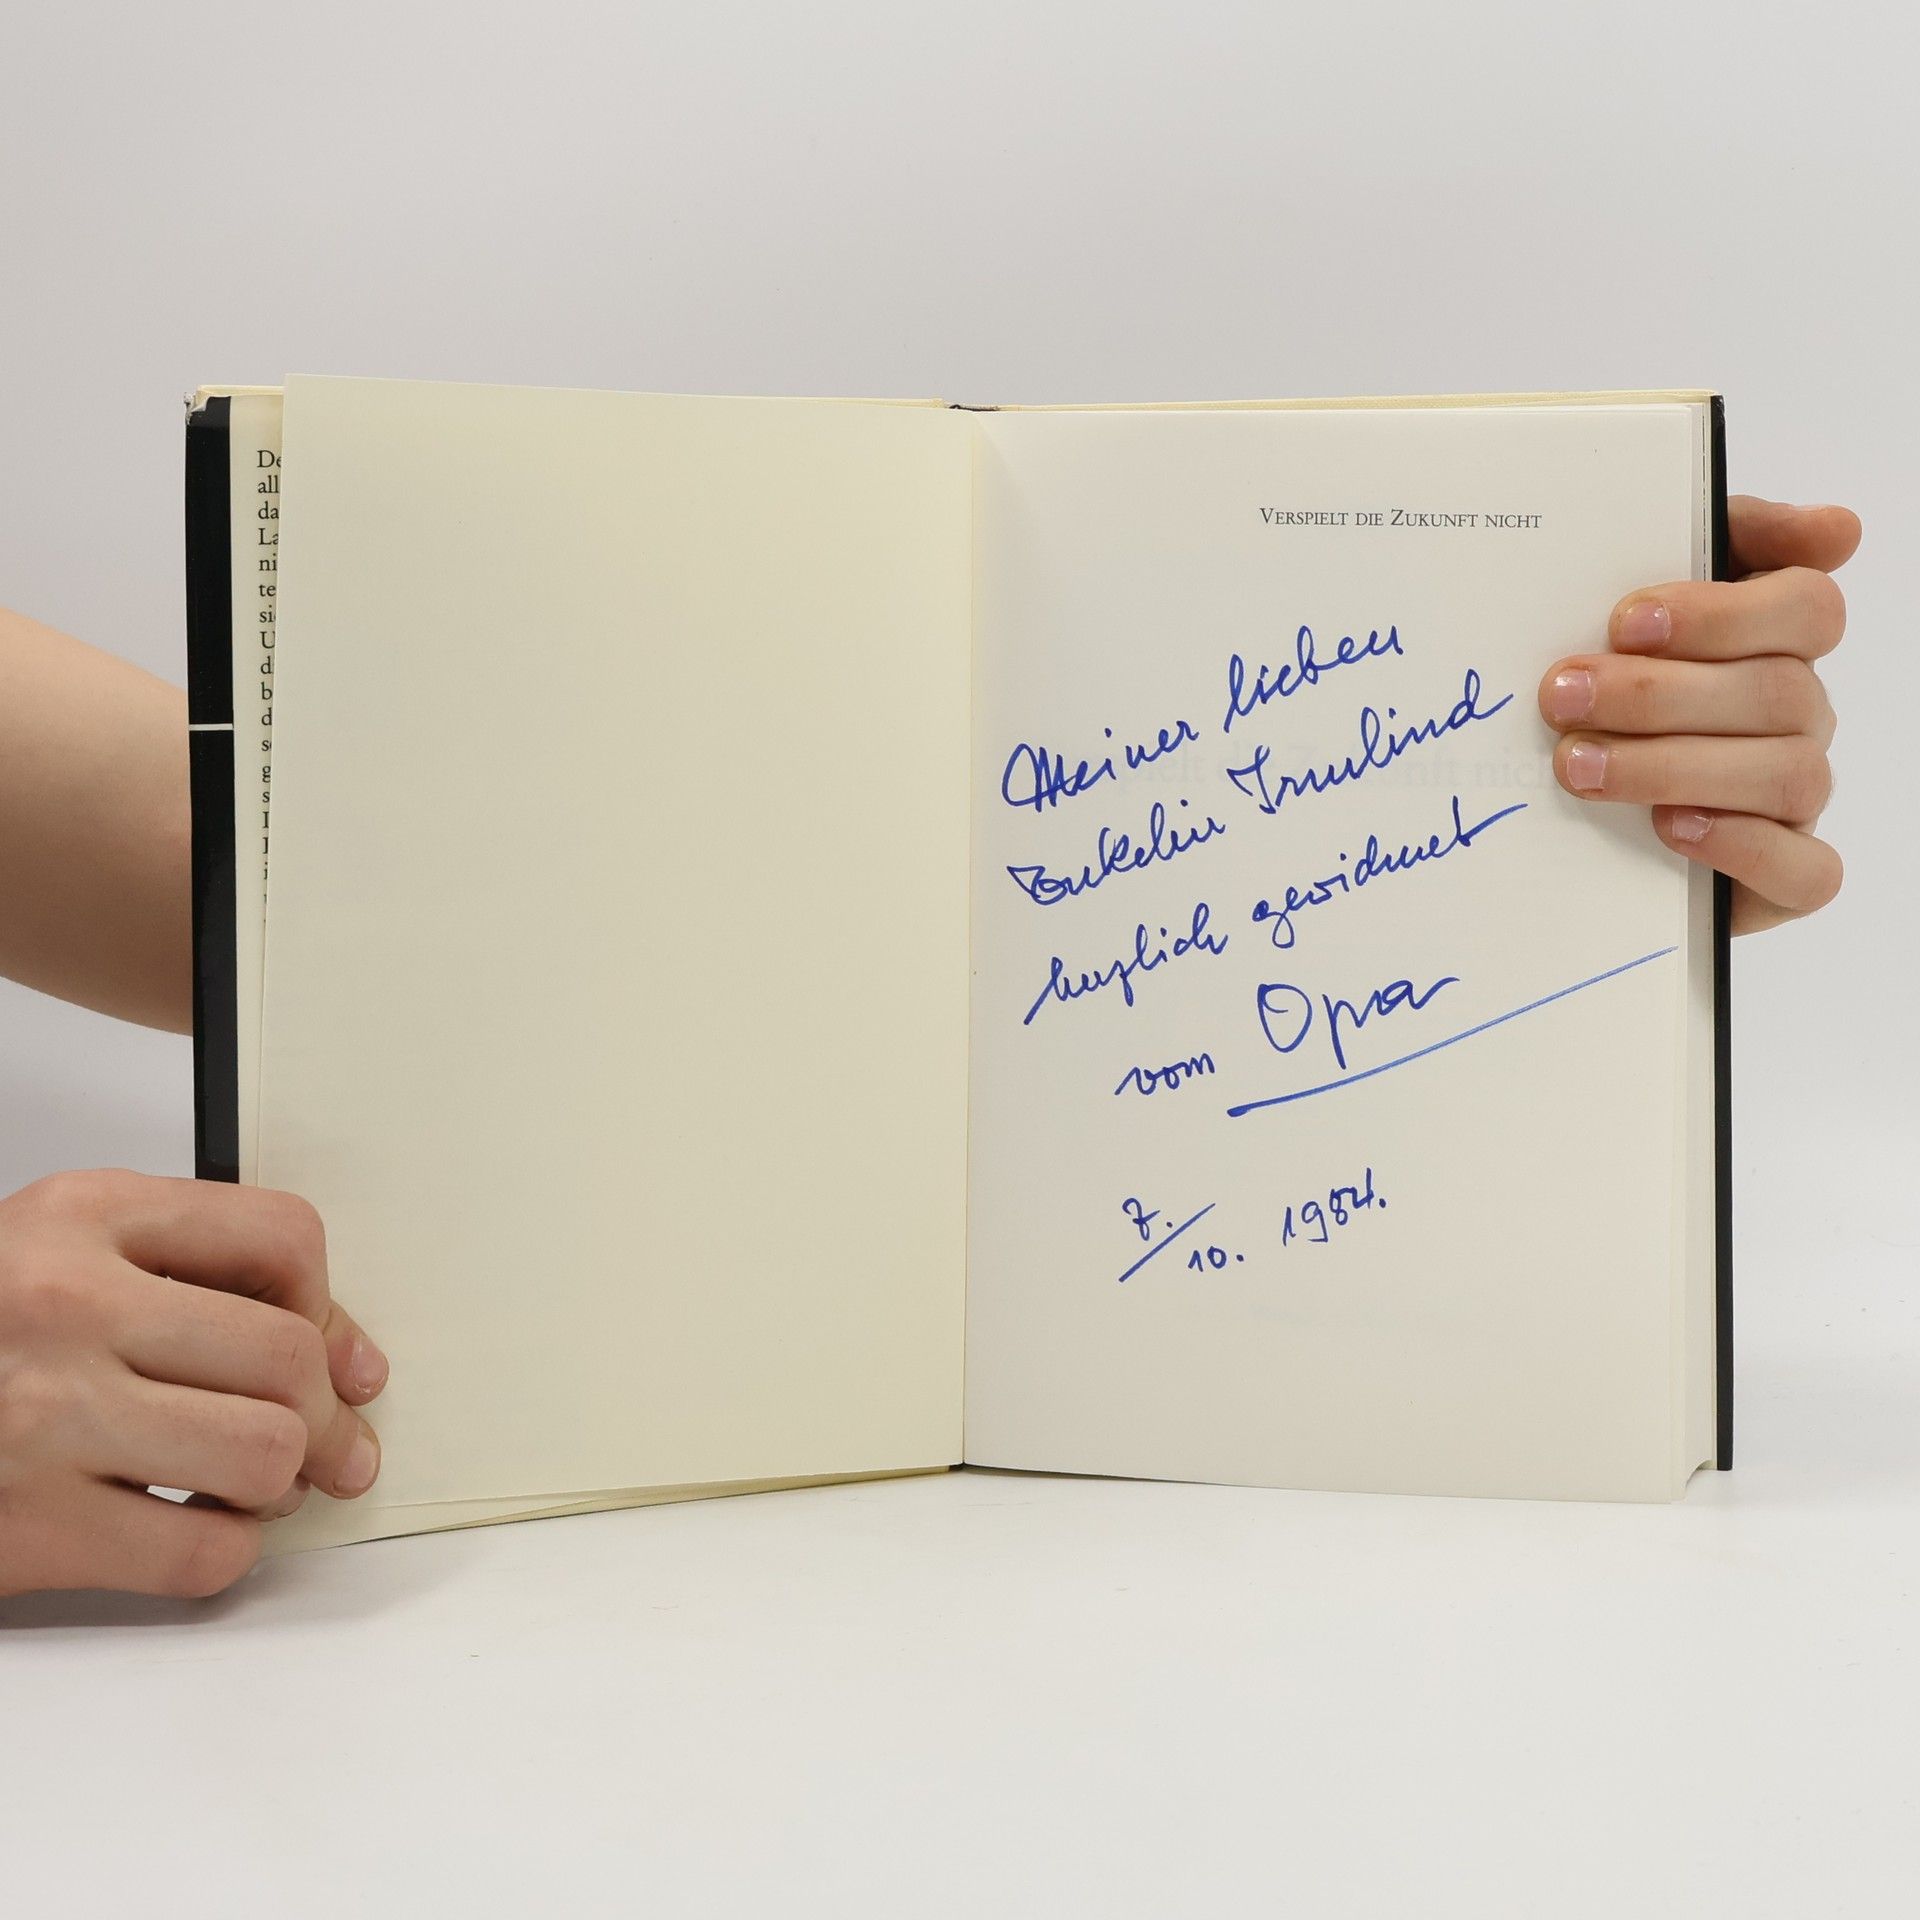 De
all
da
La
ni
te
sic
U
di
b
d
s
g
s
VERSPIELT DIE ZUKUNFT NICHT
Meiner lieben
Enkelin Irmlind
herzlich gewidmet
vom Opa
7./10. 1984.